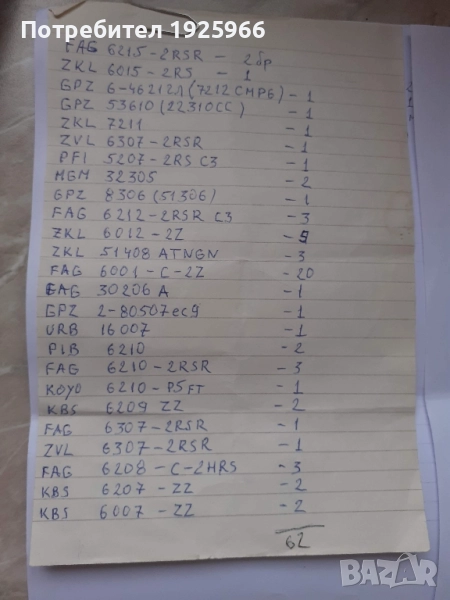 Потребител 1925966
FAG 6215-2RSR - 2бр
ZKL 6015-2RS - 1
GPZ 6-46212Л (7212CMP6) - 1
GPZ 53610 (22310CC) - 1
ZKL 7211 - 1
ZVL 6307-2RSR - 1
PFI 5207-2RS C3 - 1
MGM 32305 - 2
GPZ 8306 (51306) - 1
FAG 6212-2RSR C3 - 3
ZKL 6012-2Z - 9
ZKL 51408 ATNGN - 3
FAG 6001-C-2Z - 20
FAG 30206 A - 1
GPZ 2-80507ec9 - 1
URB 16007 - 1
PIB 6210 - 2
FAG 6210-2RSR - 3
KOYO 6210-P5FT - 1
KBS 6209 ZZ - 2
FAG 6307-2RSR - 1
ZVL 6307-2RSR - 1
FAG 6208-C-2HRS - 3
KBS 6207-ZZ - 2
KBS 6007-ZZ - 2
62
BAZAR